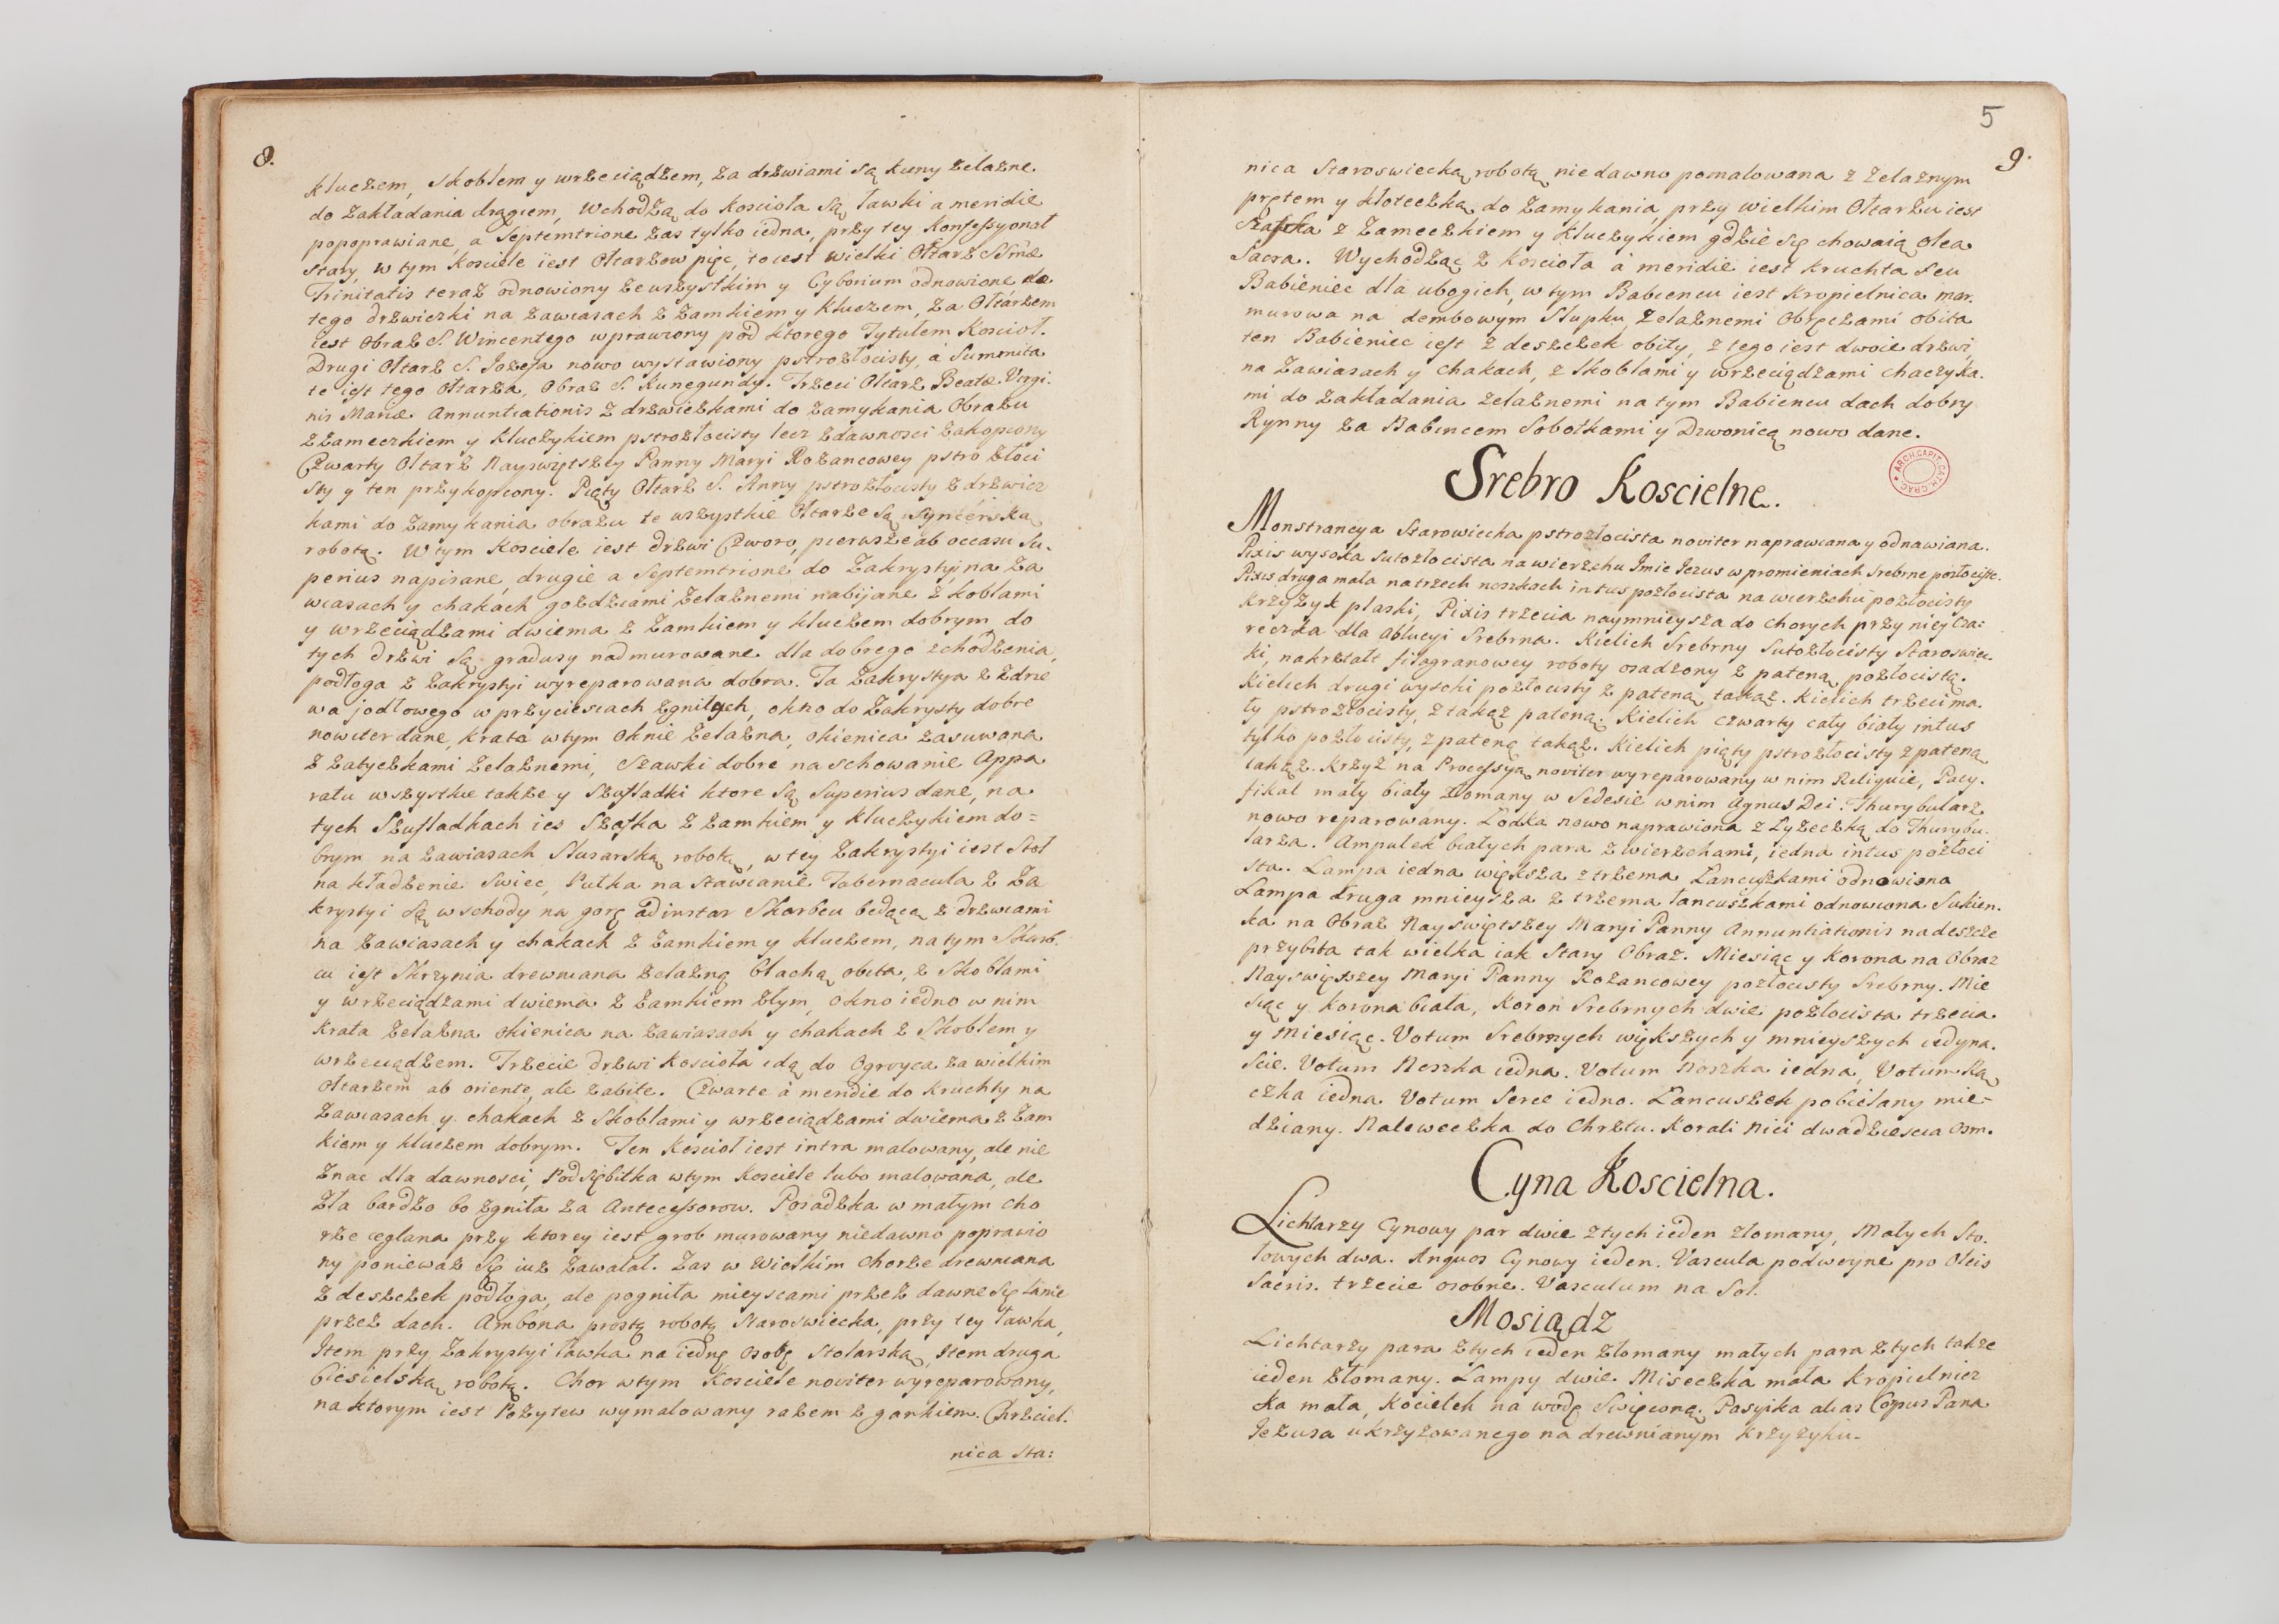 8.
kluczem, Skoblem y wrzeciądzem, za drzwiami są kuny żelazne
do zakładania drągiem, Wchodzą do Koscioła są ławki a meridie
popoprawiane, a Septemtrione zas tylko iedna, przy tey Konfessyonał
stary, w tym Kosciele iest Ołtarzow pięc, to iest wielki Ołtarz SSmæ
Trinitatis teraz odnowiony ze wszystkim y Cyborium odnowione, do
tego drzwiczki na zawiasach z Zamkiem y Kluczem, za Ołtarzem
iest Obraz S. Wincentego wprawiony pod ktorego Tytułem Koscioł.
Drugi Ołtarz S. Jozefa nowo wystawiony pstrozłocisty, á Summita
te iest tego Ołtarza, Obraz S. Kunegundy. Trzeci Ołtarz Beatæ Virgi.
nis Mariæ Annuntiationis z drzwiczkami do zamykania Obrazu
z zameczkiem y kluczykiem pstrozłocisty lecz z dawnosci zakopcony
Czwarty Ołtarz Nayswiętszey Panny Maryi Rozancowey pstro złoci
sty y ten przykopcony. Piąty Ołtarz S. Anny pstrozłocisty z drzwicz
kami do zamykania obrazu te wszystkie Ołtarze są Snycerską
robotą. W tym Kosciele iest drzwi Czworo, pierwsze ab occasu Su-
perius napisane, drugie a Septemtrione do Zakrystyi na za
wiasach y chakach gozdziami żelaznemi nabijane z koblami
y wrzeciądzami dwiema z Zamkiem y kluczem dobrym do
tych drzwi są gradusy nadmurowane dla dobrego zchodzenia,
podłoga z Zakrystyi wyreparowana dobra. Ta Zakrystya z zdrze
wa jodłowego w przyciesiach zgniłych, okno do Zakrysty dobre
nowiter dane, krata w tym Oknie żelazna, okienica zasuwana
z zatyczkami żelaznemi, Szawki dobre na schowanie Appa
ratu wszystkie także y Szufladki ktore są Superius dane, na
tych Szufladkach ies Szafka z zamkiem y kluczykiem do=
brym na zawiasach Slusarską robotą, w tey Zakrystyi iest Stoł
na kładzenie Swiec, Pułka na stawianie Tabernacula z Za
krystyi są wschody na gorę ad instar Skarbcu będącą z drzwiami
na zawiasach y chakach z zamkiem y kluczem, na tym Skarb.
cu iest Skrzynia drewniana żelazną blachą obita, z Skoblami
y wrzeciądzami dwiema z zamkiem złym, okno iedno w nim
Krata żelazna okienica na zawiasach y chakach z Skoblem y
wrzeciądzem. Trzecie drzwi Koscioła idą do Ogroyca za wielkim
Ołtarzem ab oriente, ale zabite. Czwarte à meridie do Kruchty na
zawiasach y chakach z Skoblami y wrzeciądzami dwiema z Zam
kiem y kluczem dobrym. Ten Koscioł iest intra malowany, ale nie
znac dla dawnosci, Podsiębitka w tym Kosciele lubo malowana, ale
zła bardzo bo zgniła za Antecessorow. Posadzka w małym cho
rze ceglana przy ktorey iest grob murowany niedawno poprawio
ny poniewaz Się iuz zawalał. Zas w Wielkim Chorze drewniana
z deszczek podłoga, ale pogniła mieyscami przez dawne Się lanie
przez dach. Ambona prostą robotą Staroswiecka, przy tey ławka,
Item przy Zakrystyi ławka na iednę Osobę Stolarską, Item druga
Ciesielską robotą. Chor w tym Kosciele noviter wyreparowany,
na ktorym iest Pozytew wymalowany razem z gankiem. Chrzciel:
nica sta:
5
9.
nica Staroswiecką robotą niedawno pomalowana z żelaznym
prętem y kłoteczką do zamykania, przy wielkim Ołtarzu iest
Szafka z Zameczkiem y Kluczykiem gdzie Się chowaią Olea
Sacra. Wychodząc z Koscioła á meridie iest Kruchta Seu
Babieniec dla ubogich, w tym Babiencu iest Kropielnica mar.
murowa na dembowym Słupku, żelaznemi Obręczami obita
ten Babieniec iest z deszczek obity, z tego iest dwoie drzwi,
na Zawiasach y chakach, z Skoblami y wrzeciądzami chaczyka.
mi do zakładania żelaznemi na tym Babiencu dach dobry
Rynny za Babincem Sobotkami y Dzwonicą nowo dane.
Srebro Koscielne.
ARCH. CAPIT. CATH. CRAC
Monstrancya Starowiecka pstrozłocista noviter naprawiana y odnawiana.
Pixis wysoka sutozłocista na wierzchu Jmie Jezus w promieniach Srebrne pozłociste.
Pixis druga mała na trzech noszkach intus pozłocista na wierzchu pozłocisty
krzyżyk płaski, Pixis trzecia naymnieysza do chorych przy niey Cza:
reczka dla Ablucyi Srebrna. Kielich Srebrny Sutozłocisty Staroswiec.
ki, nakształt filagranowey roboty osadzony z pateną pozłocistą.
Kielich drugi wysoki pozłocisty z pateną takąz. Kielich trzeci ma.
ły pstrozłocisty, z takąz pateną. Kielich czwarty cały biały intus
tylko pozłocisty, z pateną takąz. Kielich piąty pstrozłocisty z pateną
takąz. Krzyż na Processyą noviter wyreparowany w nim Reliquie, Pacy.
fikał mały biały złomany w Sedesie w nim Agnus Dei. Thurybularz
nowo reparowany. Łodka nowo naprawiona z Łyzeczką do Thurybu.
larza. Ampułek białych para z wierzchami, iedna intus pozłoci
sta. Lampa iedna większa z trzema Łancuszkami odnowiona
Lampa druga mnieysza z trzema łancuszkami odnowiona Sukien.
ka na Obraz Nayswiętszey Maryi Panny Annuntiationis na deszcze
przybita tak wielka iak Stary Obraz. Miesiąc y Korona na Obraz
Nayswiętszey Maryi Panny Rozancowey pozłocisty Srebrny. Mie
siąc y Korona biała, Koron Srebrnych dwie pozłocista trzecia
y Miesiąc. Votum Srebrnych większych y mnieyszych iedyna.
scie. Votum Noszka iedna. Votum Noszka iedna, Votum Rą
czka iedna. Votum Serce iedno. Łancuszek pobielany mie-
dziany. Naleweczka do Chrztu. Korali Nici dwadziescia osm.
Cyna Koscielna.
Lichtarzy Cynowy par dwie z tych ieden złomany, Małych Sto.
łowych dwa. Anguos Cynowy ieden. Vascula podwoyne pro Oleis
Sacris. trzecie osobne. Vasculum na Sol.
Mosiądz
Lichtarzy para z tych ieden złomany małych para z tych także
ieden złomany. Lampy dwie. Miseczka mała Kropielnicz
ka mała, Kociełek na wodę Swięconą. Pasyika alias Corpus Pana
Jezusa ukrzyzowanego na drewnianym krzyżyku.